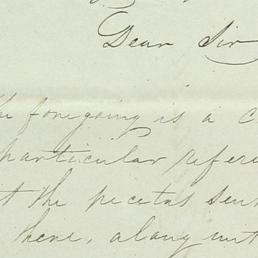 Dear Sir
the foregoing is a c
particular refere
t the pecetas sen
there, along wit